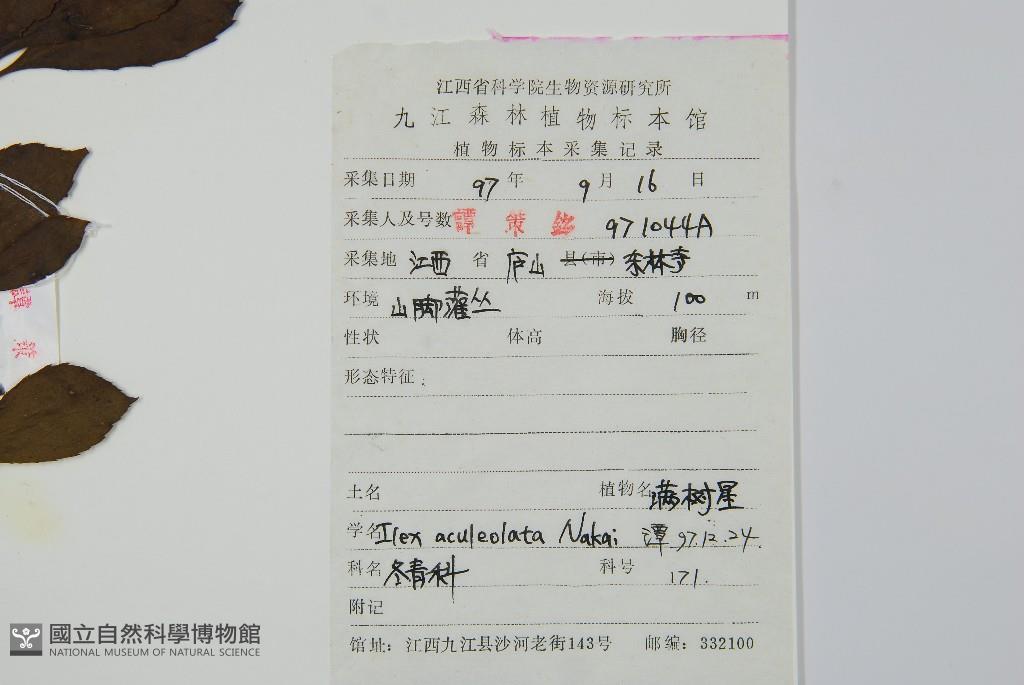 江西省科学院生物资源研究所
九江森林植物标本馆
植物标本采集记录
采集日期 97年 9月 16日
采集人及号数 譚策銘 971044A
采集地 江西 省 庐山 县(市) 东林寺
环境 山脚灌丛 海拔 100 m
性状 体高 胸径
形态特征:
土名 植物名 满树星
学名 Ilex aculeolata Nakai 潭 97.12.24.
科名 冬青科 科号 171.
附记
馆址: 江西九江县沙河老街143号 邮编: 332100
譚
策
國立自然科學博物館
NATIONAL MUSEUM OF NATURAL SCIENCE